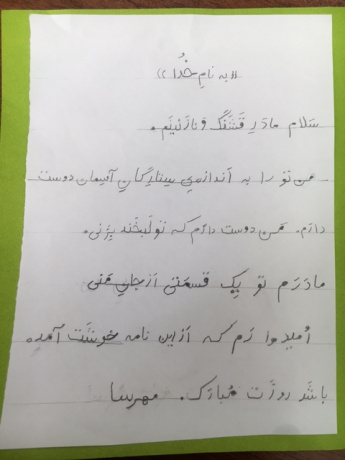 «به نامِ خُدا»
سَلام مادَرِ قَشَنگ و نازَنینَم.
مَن تو را به اَندازه‌یِ سِتارِگانِ آسِمان دوست
دارَم. مَن دوست دارَم که تو لَبخَند بِزَنی.
مادَرَم تو یِک قِسمَتی اَز جانِ مَنی
اُمیدوا رَم که اَز این نامه خوشَت آمَده
باشَد روزَت مُبارَک. مهرسا